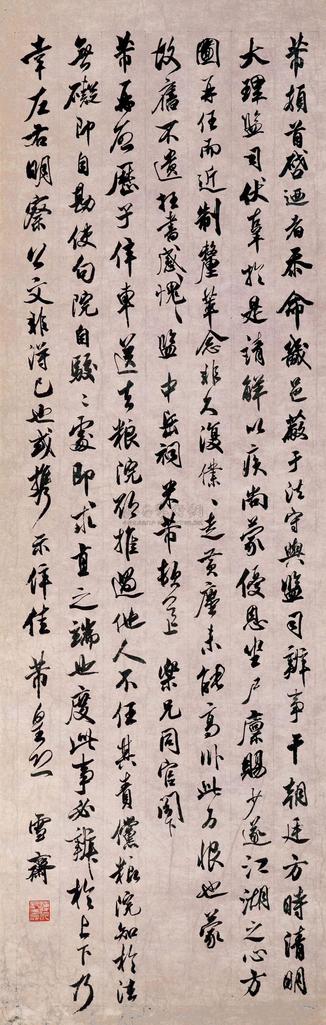 芾頓首啓迺者忝命畿邑蔽于法守與監司辨事干朝廷方時清明
大理監司伏辜於是請解以疾尚蒙優恩坐尸廩賜少遂江湖之心方
圖再任而近制釐革念非久復僕々走黃塵未能高卧此爲恨也蒙
故舊不遺枉書感愧監中岳祠米芾頓首上 樂兄同官閣下
芾再啓歷子倅車送去粮院欲推過他人不任其責儻粮院知於法
無礙即自勘使句院自駮々處即求直之端也度此事必辨於上下乃
幸左右明察公文非得已也或攜示倅佳 芾皇恐 雪齋